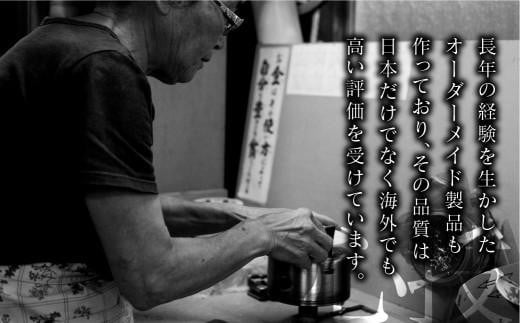 長年の経験を生かした
オーダーメイド製品も
作っており、その品質は
日本だけでなく海外でも
高い評価を受けています。